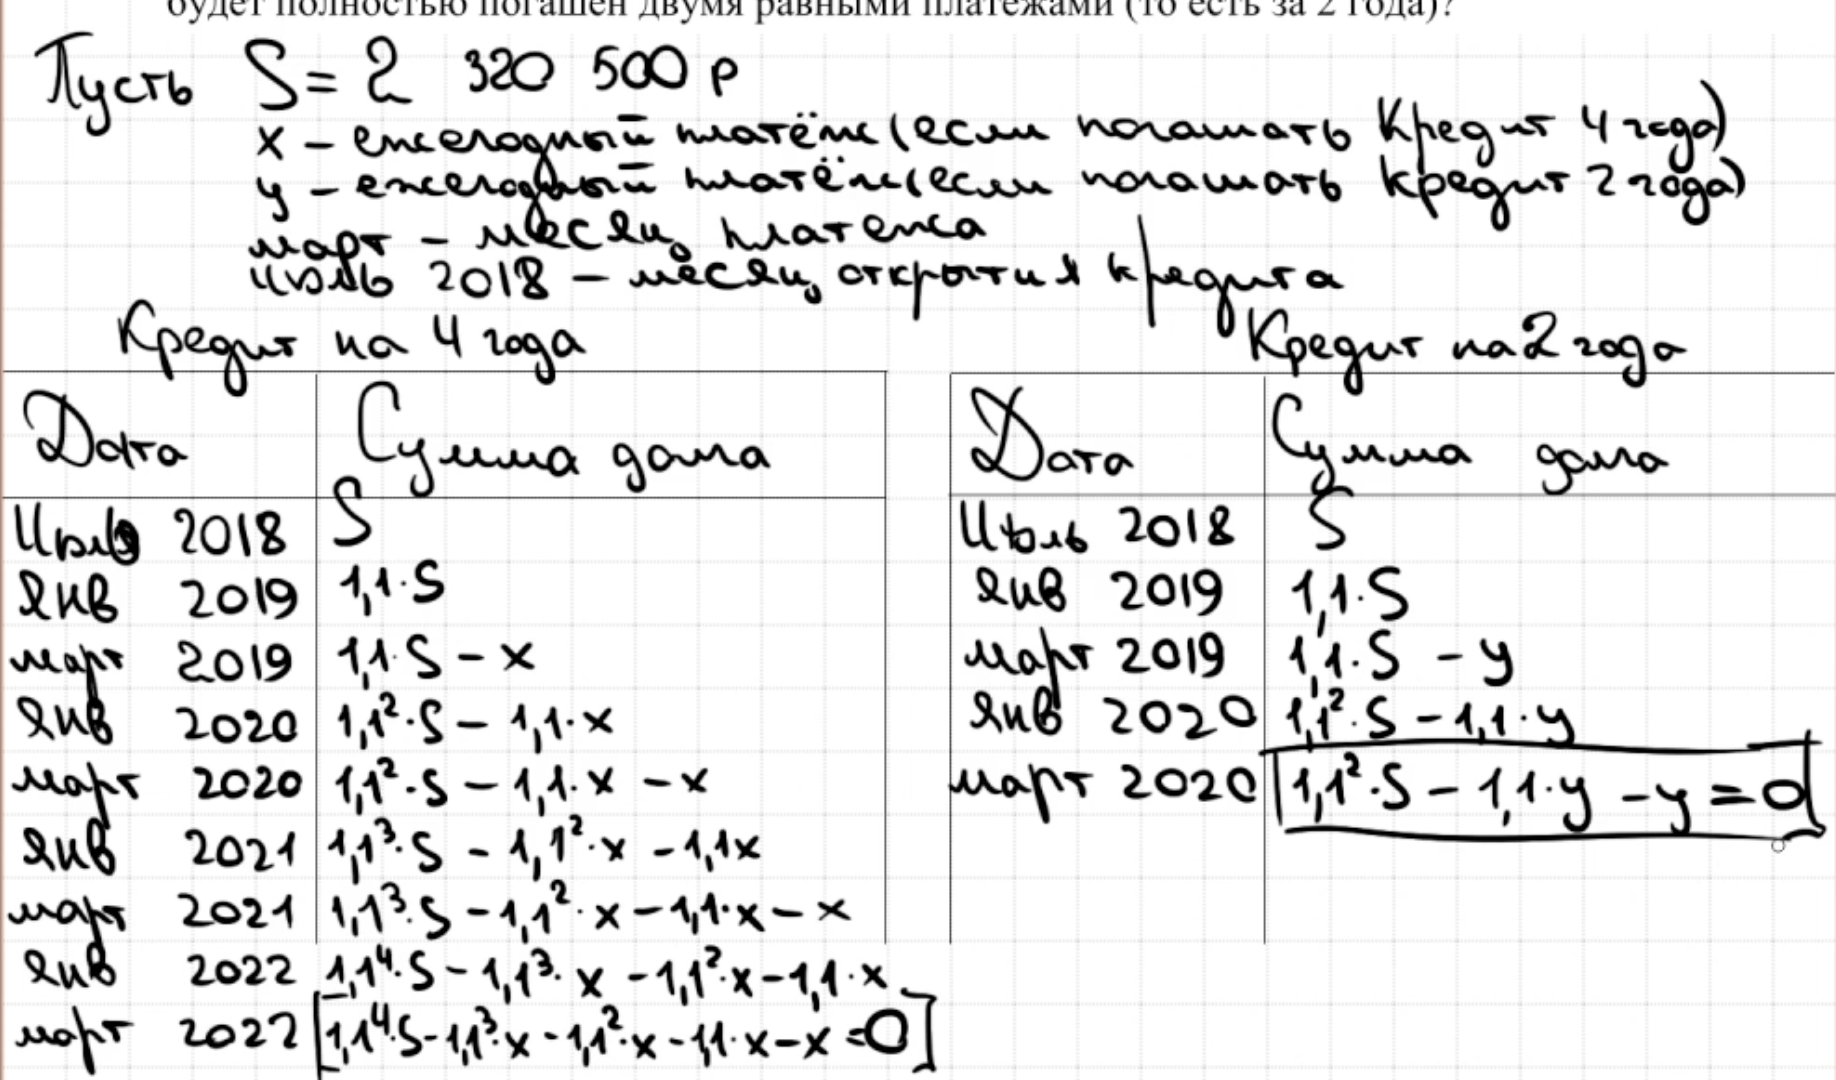 будет полностью погашен двумя равными платежами (то есть за 2 года)?
Пусть S = 2 320 500 р
x – ежегодный платёж (если погашать кредит 4 года)
y – ежегодный платёж (если погашать кредит 2 года)
март – месяц платежа
июль 2018 – месяц открытия кредита
Кредит на 4 года
Дата Сумма долга
Июль 2018 S
Янв 2019 1,1·S
март 2019 1,1·S – x
Янв 2020 1,1²·S – 1,1·x
март 2020 1,1²·S – 1,1·x – x
Янв 2021 1,1³·S – 1,1²·x – 1,1x
март 2021 1,1³·S – 1,1²·x – 1,1·x – x
Янв 2022 1,1⁴·S – 1,1³·x – 1,1²·x – 1,1·x
март 2022 1,1⁴·S – 1,1³·x – 1,1²·x – 1,1·x – x = 0
Кредит на 2 года
Дата Сумма долга
Июль 2018 S
Янв 2019 1,1·S
март 2019 1,1·S – y
Янв 2020 1,1²·S – 1,1·y
март 2020 1,1²·S – 1,1·y – y = 0